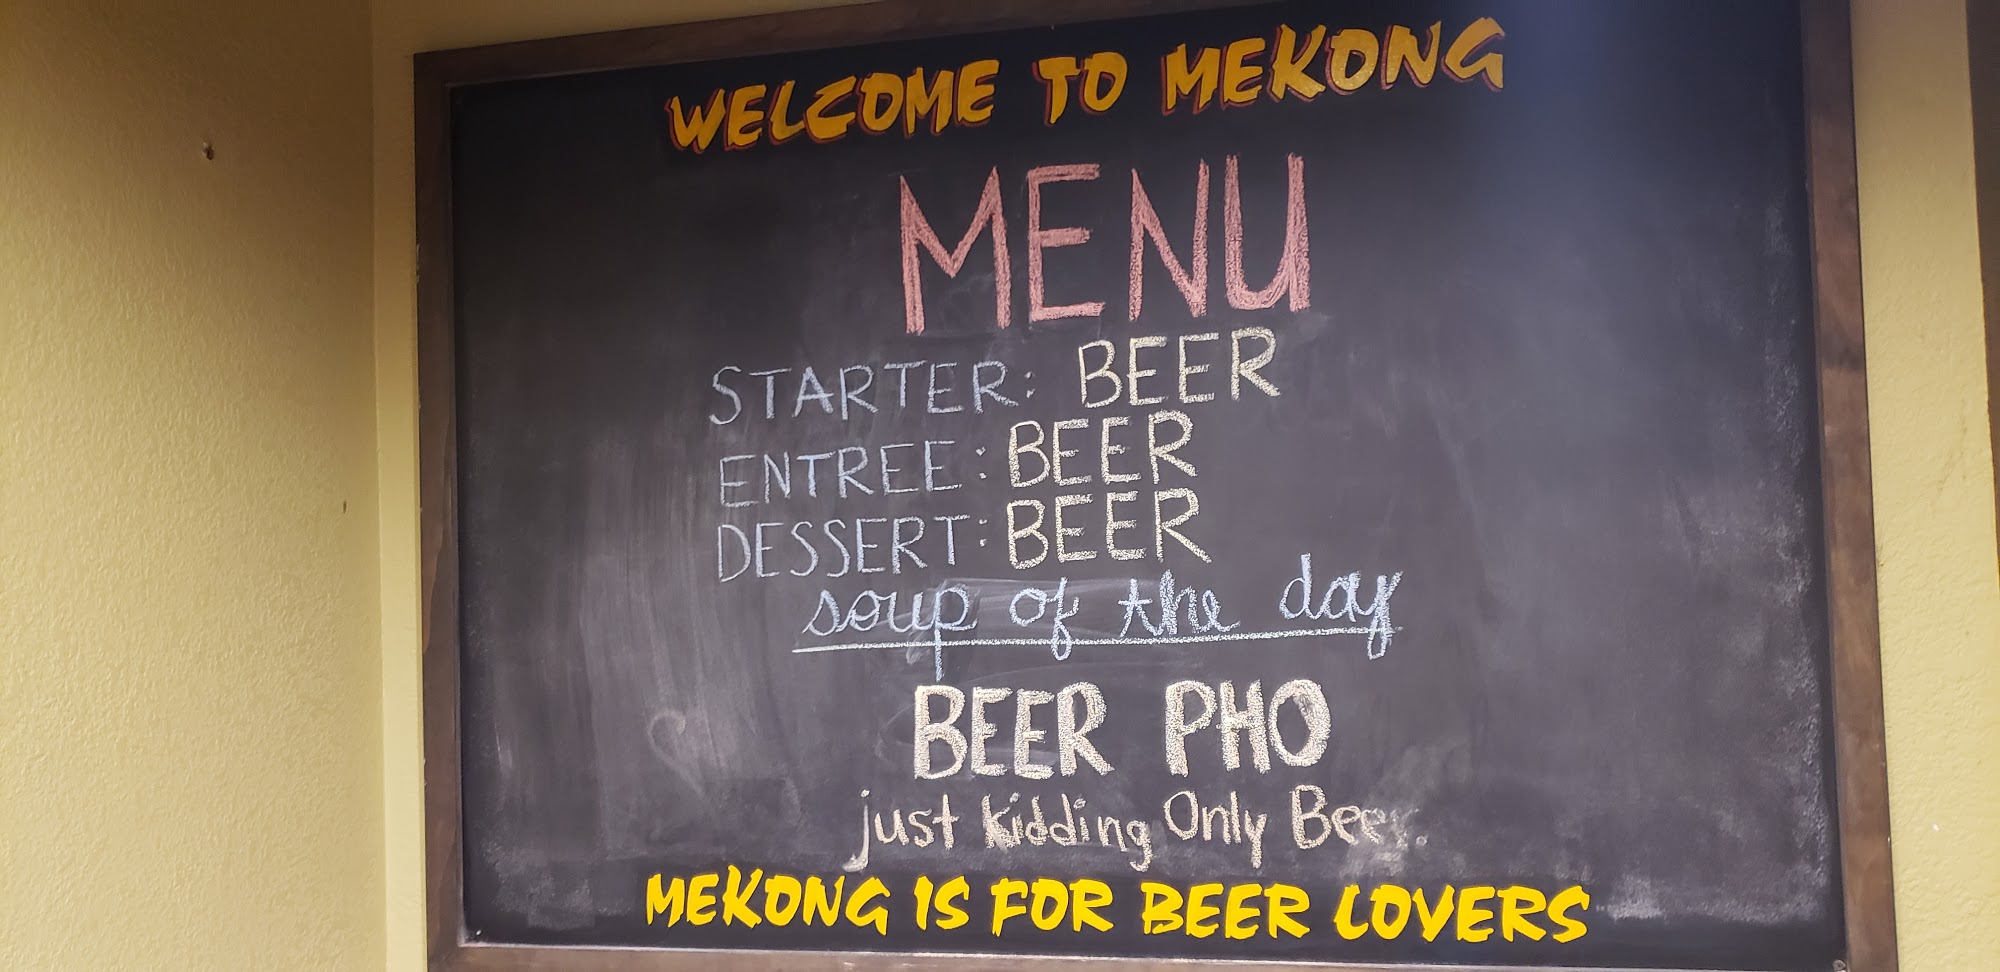 WELCOME TO MEKONG
MENU
STARTER: BEER
ENTREE: BEER
DESSERT: BEER
soup of the day
BEER PHO
just kidding Only Beer.
MEKONG IS FOR BEER LOVERS